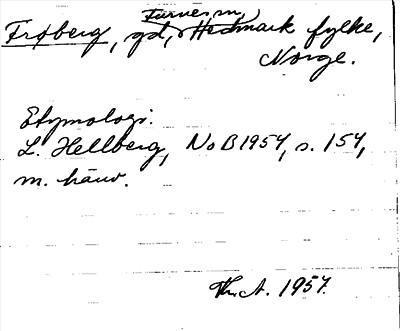 Furnes, m,
Frøberg, gd, Hedmark fylke,
Norge.
Etymologi.
L. Hellberg, NoB 1954, s. 154,
m. hänv.
Th. A. 1957.